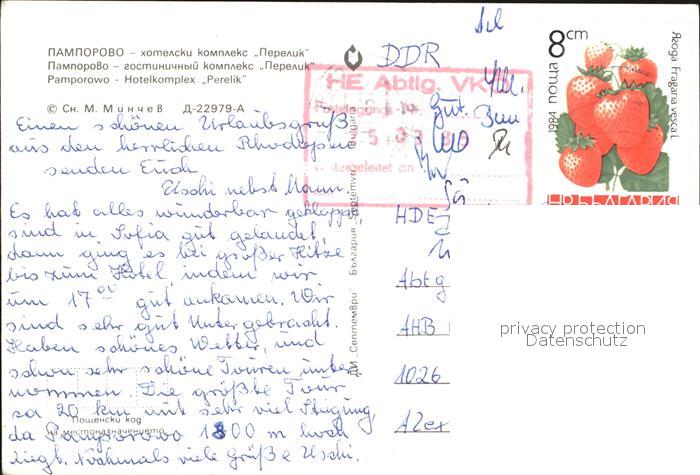 ПАМПОРОВО – хотелски комплекс „Перелик"
Пампорово – гостиничный комплекс „Перелик"
Pamporowo - Hotelkomplex "Perelik"
© Сн. М. Минчев Д-22979-А
Einen schönen Urlaubsgruß
aus den herrlichen Rhodopen
senden Euch
Uschi nebst Mann.
Es hat alles wunderbar geklappt,
sind in Sofia gut gelandet,
dann ging es bei großer Hitze
bis zum Hotel, indem wir
um 17⁰⁰ gut ankamen. Wir
sind sehr gut Untergebracht.
Haben schönes Wetter, und
schon sehr schöne Touren unter
nommen. Die größte Tour
ca 20 km mit sehr viel Steigung,
da Pamporowo 1800 m hoch
liegt. Nochmals viele Grüße Uschi.
Пощенски код
на местоназначението
ДИ „Септември" България Septemvri Bulgaria
DDR
HE Abtlg. VK
weitergeleitet an
HDE
Abtg
AHB
1026
Alex
8 cm
поща
1984
Ягода Fragaria vesca L
НР БЪЛГАРИЯ
privacy protection
Datenschutz